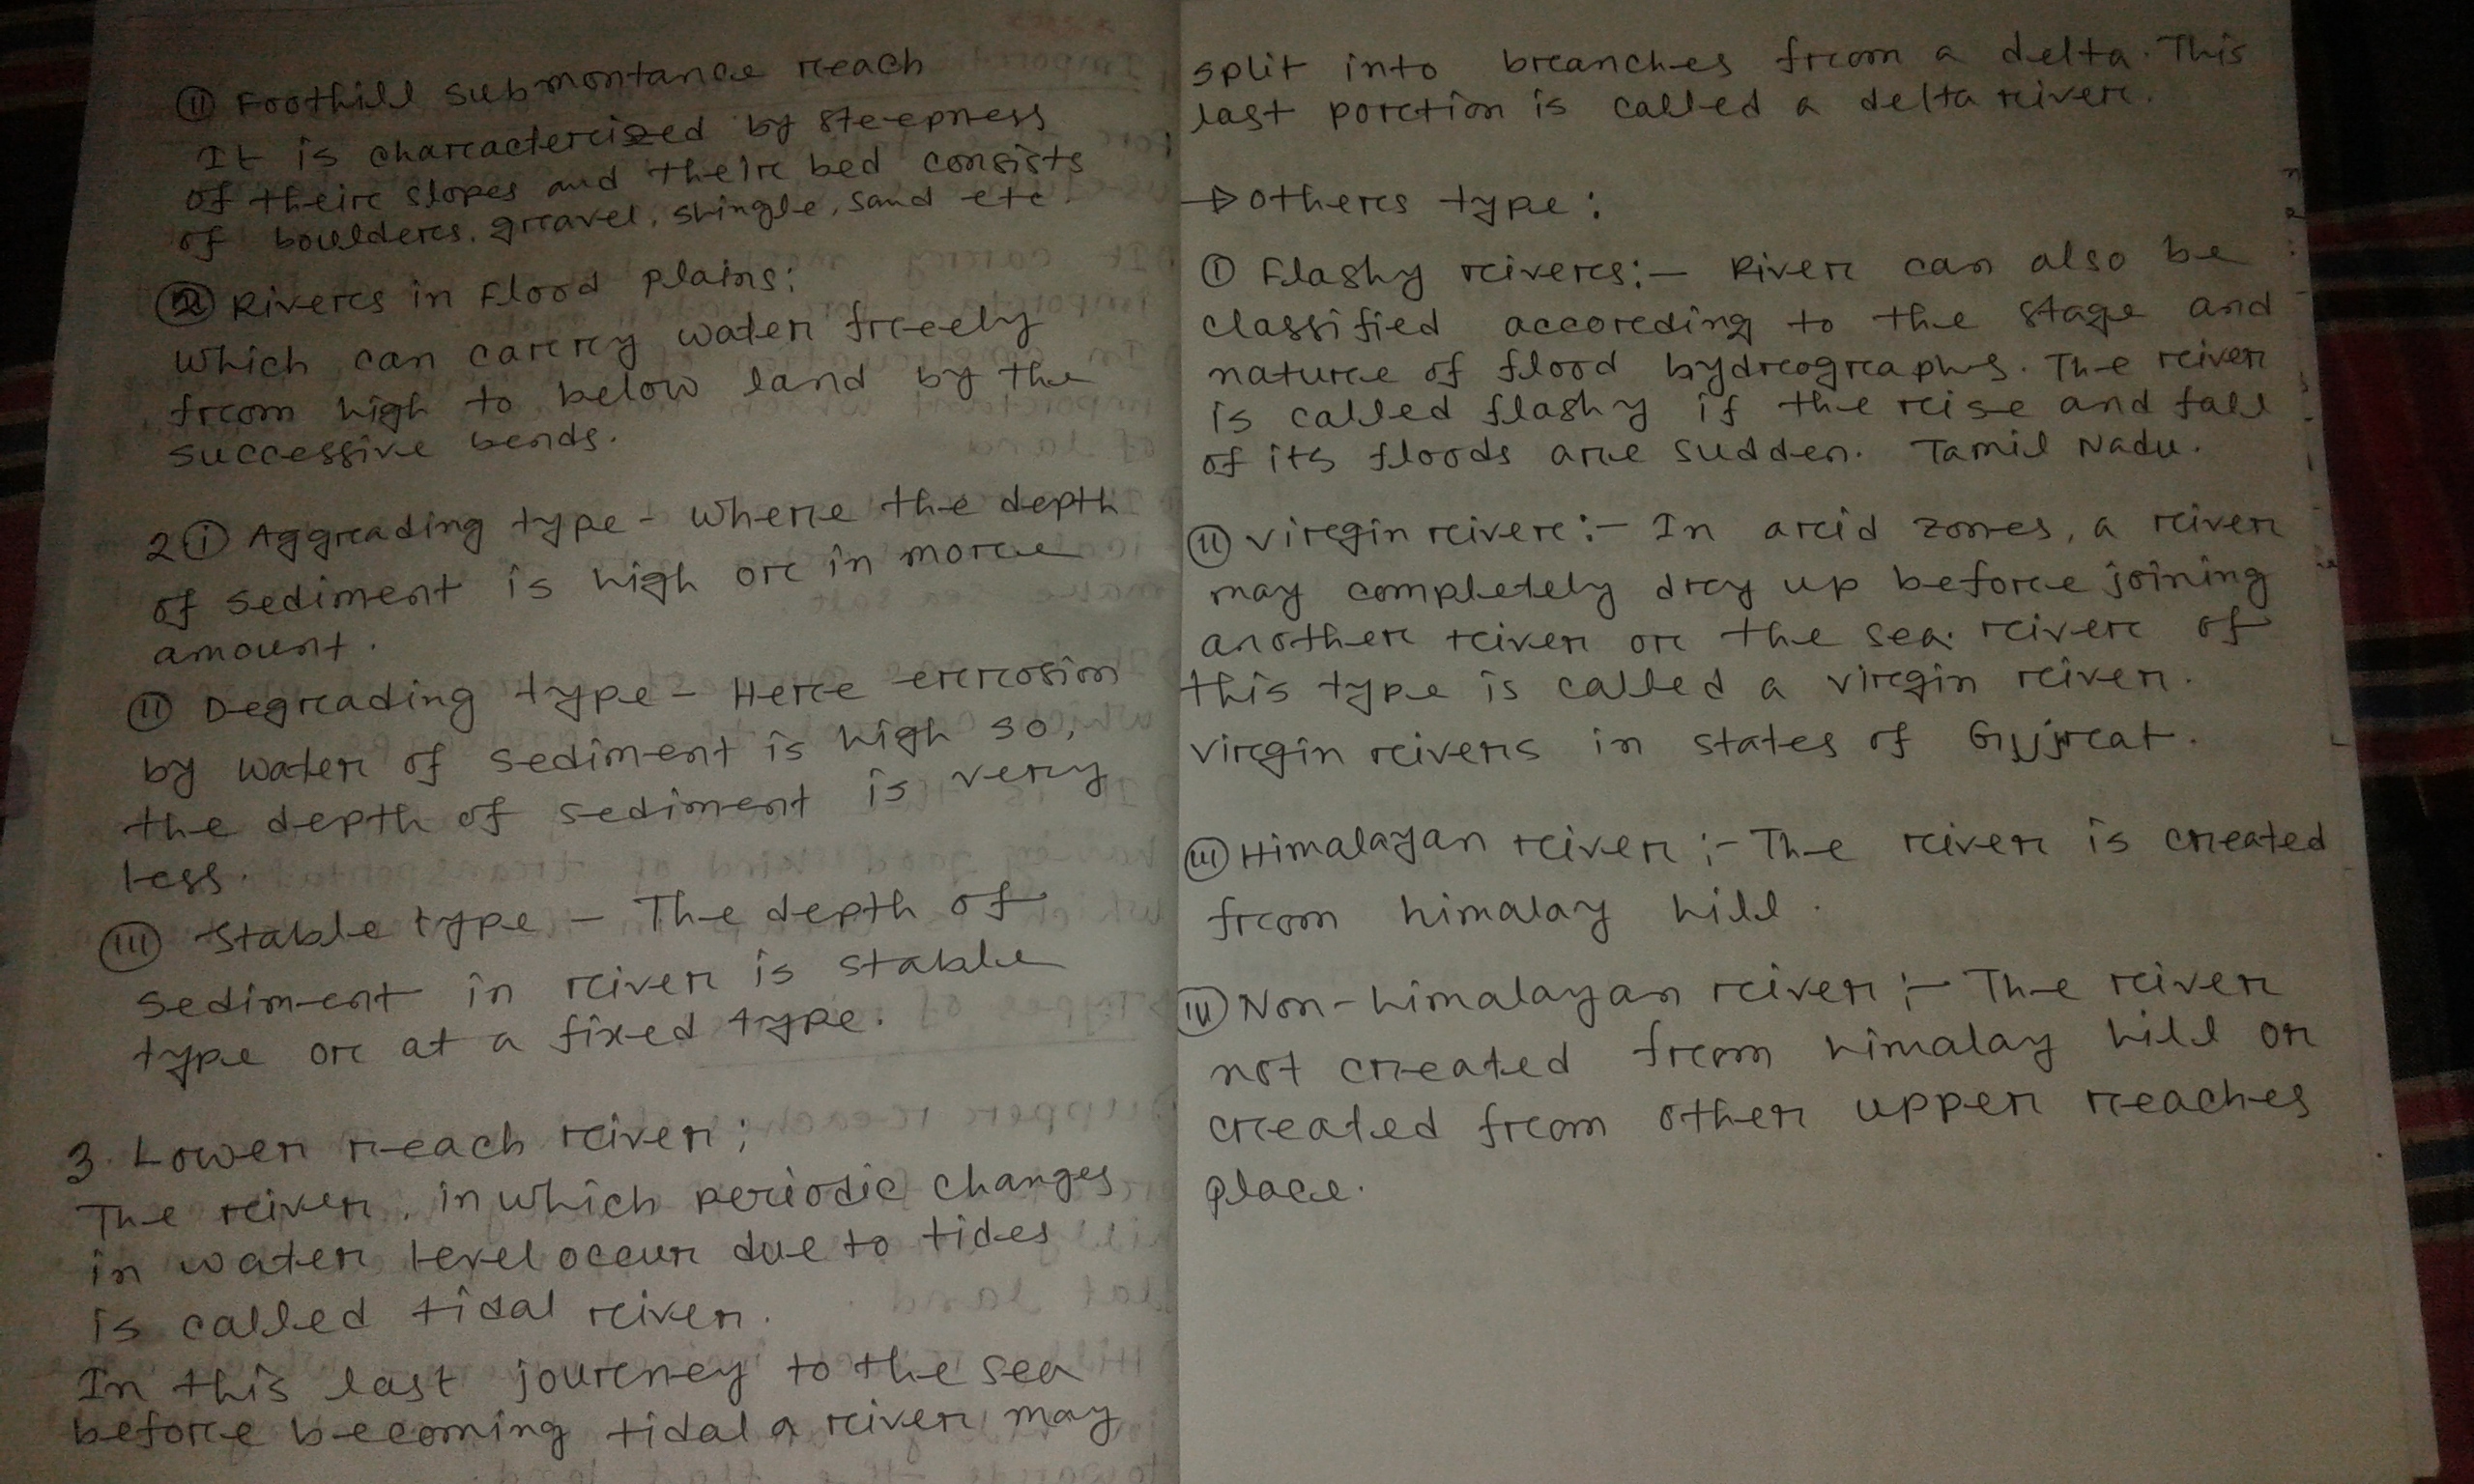 (ii) Foothill submontance reach
It is characterized by steepness
of their slopes and their bed consists
of boulders, gravel, shingle, sand etc.
(2) Rivers in Flood plains:
which can carry water freely
from high to below land by the
successive bends.
2 (i) Aggrading type - where the depth
of sediment is high or in more
amount.
(ii) Degrading type - Here errosion
by water of sediment is high so,
the depth of sediment is very
less.
(iii) Stable type - The depth of
sediment in river is stable
type or at a fixed type.
3. Lower reach river;
The river, in which periodic changes
in water level occur due to tides
is called tidal river.
In this last journey to the sea
before becoming tidal a river may
split into branches from a delta. This
last portion is called a delta river.
→ others type:
(i) Flashy rivers:- River can also be
classified according to the stage and
nature of flood hydrographs. The river
is called flashy if the rise and fall
of its floods are sudden. Tamil Nadu.
(ii) virgin river:- In arid zones, a river
may completely dry up before joining
another river or the sea. river of
this type is called a virgin river.
virgin rivers in states of Gujrat.
(iii) Himalayan river:- The river is created
from himalay hill.
(iv) Non-himalayan river:- The river
not created from himalay hill or
created from other upper reaches
place.